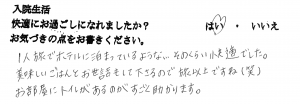 入院生活
快適にお過ごしになれましたか? はい ・ いいえ
お気づきの点をお書きください。
1人旅でホテルに泊まっているような、そのくらい快適でした。
美味しいごはんとお世話をして下さるので旅以上ですね(笑)
お部屋にトイレがあるのがすごい助かります。